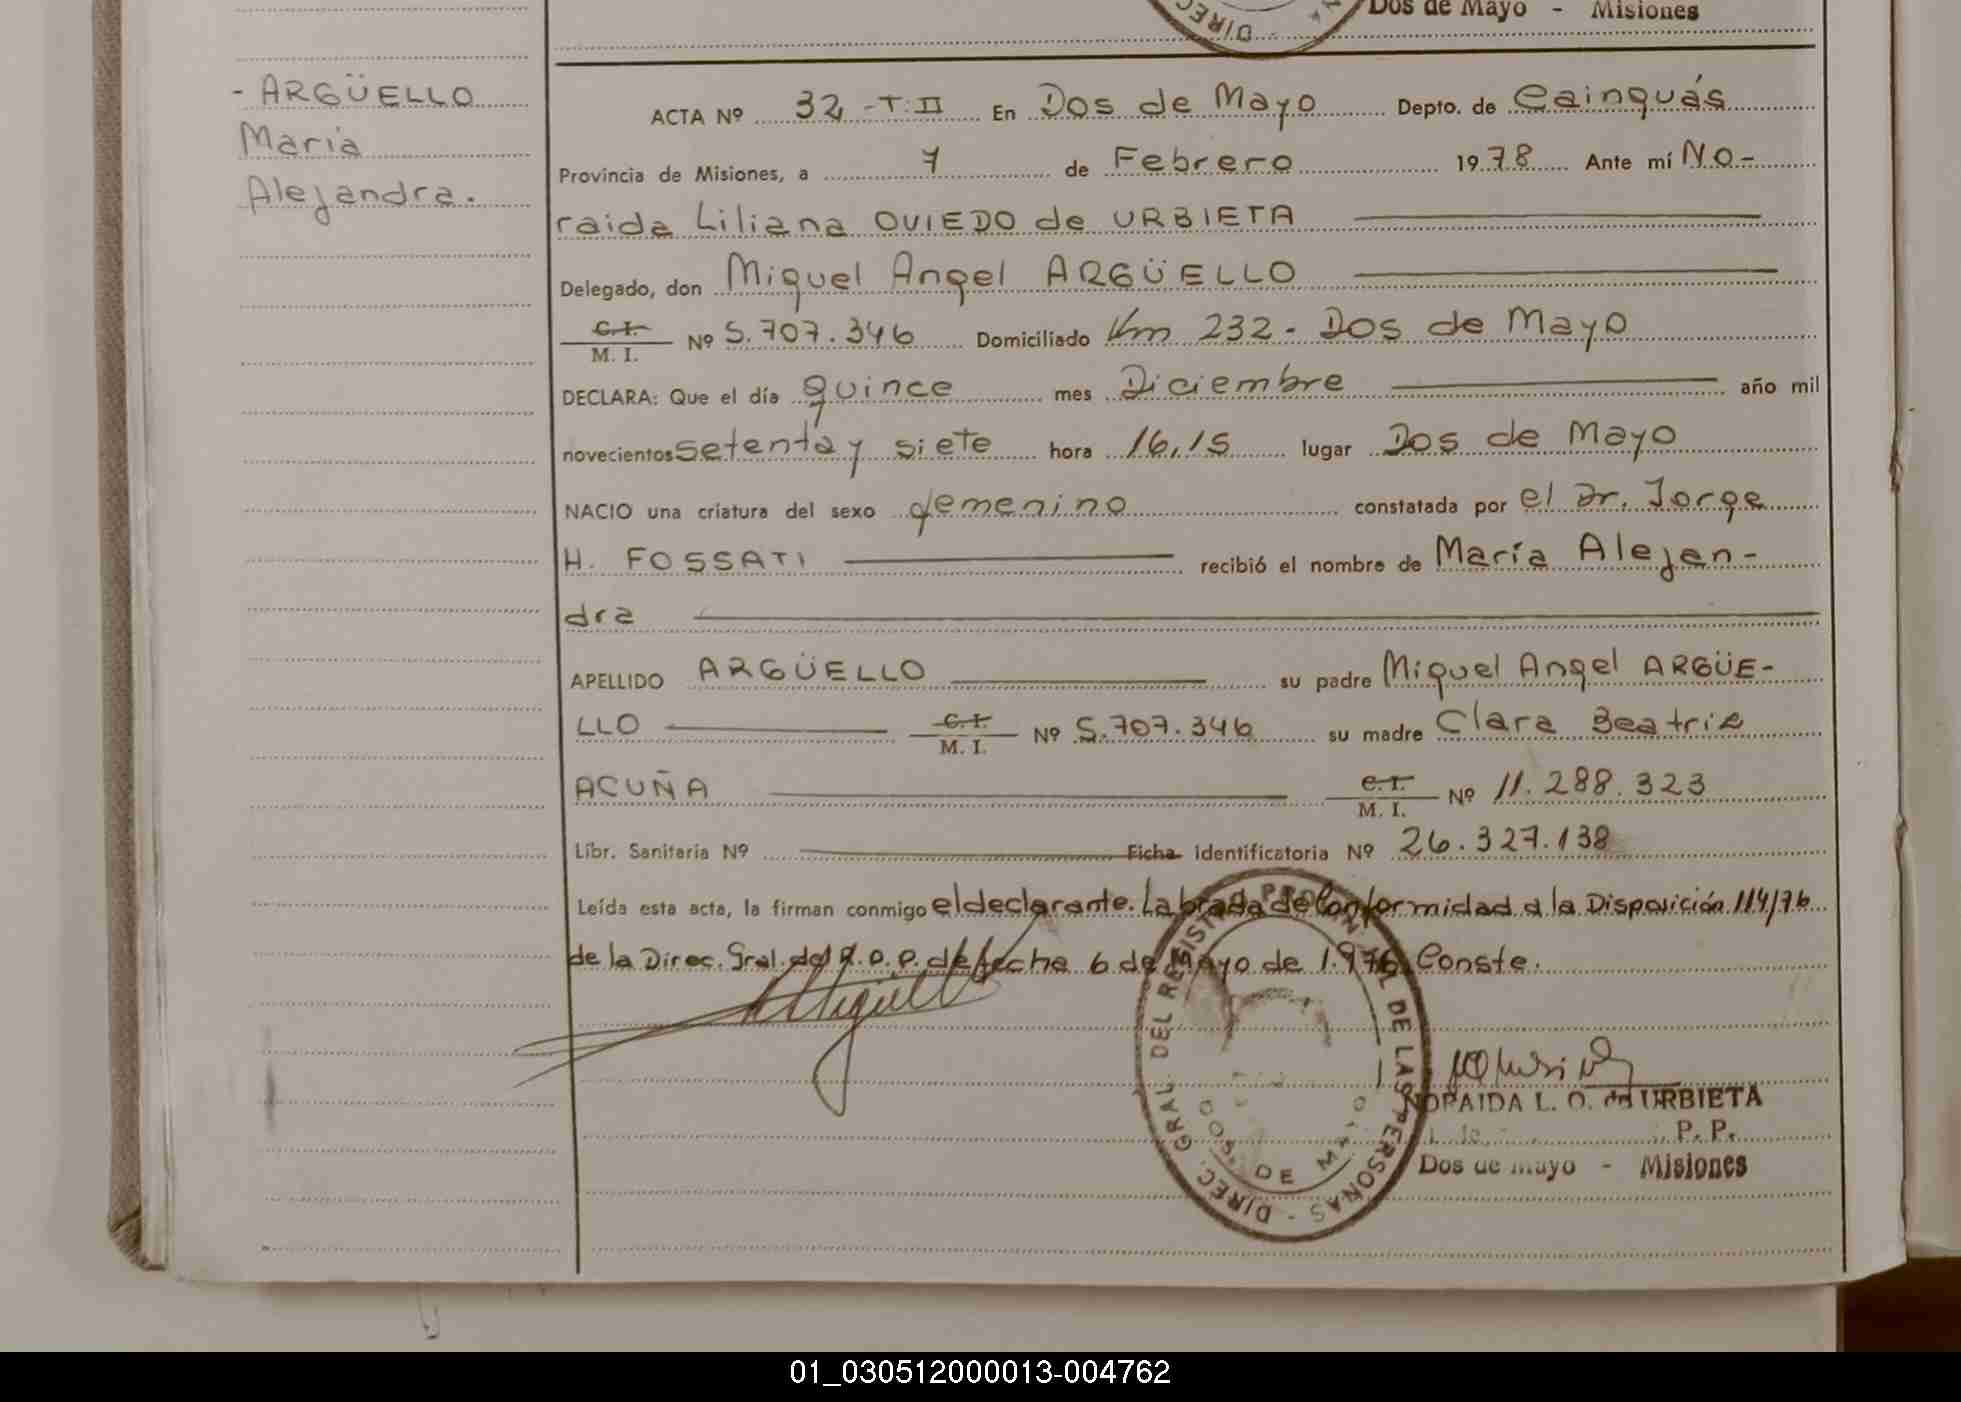 Dos de Mayo - Misiones
DIREC
- ARGÜELLO
María
Alejandra.
ACTA Nº 32 - T. II En Dos de Mayo Depto. de Cainguás
Provincia de Misiones, a 7 de Febrero 1978 Ante mí No-
raida Liliana OVIEDO de URBIETA
Delegado, don Miguel Angel ARGÜELLO
C.I.
M. I. Nº 5.707.346 Domiciliado Km 232 - Dos de Mayo
DECLARA: Que el día quince mes Diciembre año mil
novecientos setenta y siete hora 16,15 lugar Dos de Mayo
NACIO una criatura del sexo femenino constatada por el Dr. Jorge
H. FOSSATI recibió el nombre de María Alejan-
dra
APELLIDO ARGÜELLO su padre Miguel Angel ARGÜE-
LLO C.I. M. I. Nº 5.707.346 su madre Clara Beatriz
ACUÑA C.I. M. I. Nº 11.288.323
Libr. Sanitaria Nº Ficha Identificatoria Nº 26.327.138
Leída esta acta, la firman conmigo el declarante. Labrada de Conformidad a la Disposición 114/76
de la Direc. Gral. del R.P.P. de fecha 6 de Mayo de 1.976. Conste.
DIREC. GRAL. DEL REGISTRO PROVINCIAL DE LAS PERSONAS -
DOS DE MAYO
NORAIDA L. O. de URBIETA
P. P.
Dos de mayo - Misiones
01_030512000013-004762